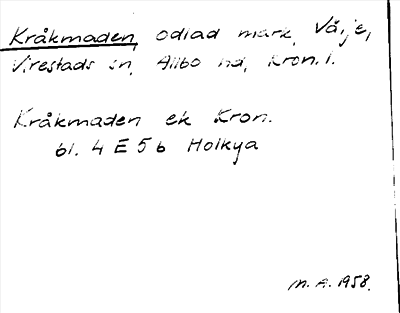 Kråkmaden, odlad mark, Våije,
Virestads sn, Allbo hd, Kron. l.
Kråkmaden ek Kron.
bl. 4 E 5 b Holkya
M. A. 1958.